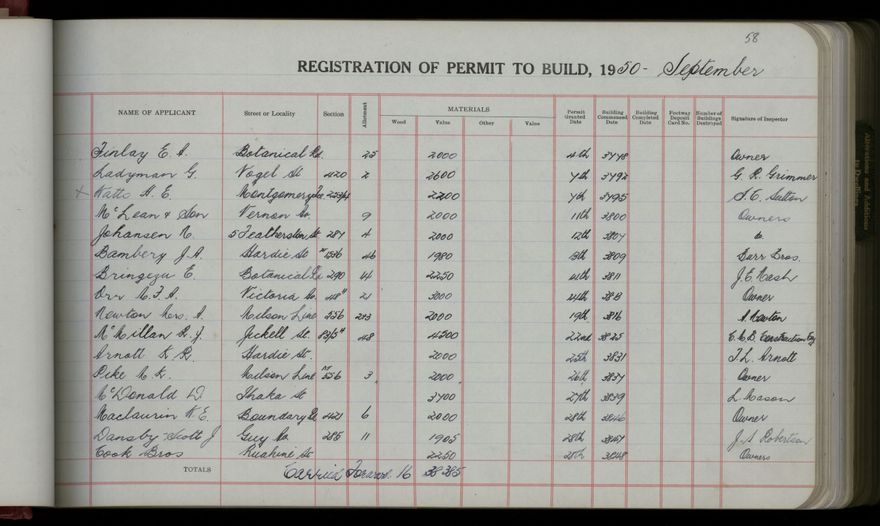 58
REGISTRATION OF PERMIT TO BUILD, 1950 - September
NAME OF APPLICANT Street or Locality Section Allotment MATERIALS Permit Granted Date Building Commenced Date Building Completed Date Footway Deposit Card No. Number of Buildings Destroyed Signature of Inspector
Wood Value Other Value
Finlay E. A. Botanical Rd. 25 2000 4th 3778 Owner
Ladyman G. Vogel St 420 2 2600 7th 3792 G. R. Grimmer
x Watts H. E. Montgomery 2200 7th 3795 Sutton
McLean & Son Vernon 9 2000 11th 3800 Owners
Johansen N. 5 Featherston St 287 4 2000 12th 3807
Bambery J. A. Hardie St 1536 46 1980 13th 3809 Barr Bros.
Bringeza E. Botanical Rd 290 14 2250 14th 3811 J. E. Nash
Orr Victoria 21 3000 14th 3813 Owner
Newton Mrs. A. Milson Line 556 2000 19th 3816 A. Newton
McMillan R. J. Jickell St. 48 4500 22nd 3825 Construction Coy
Arnott K. R. Hardie St. 2000 25th 3831 T. L. Arnott
Pike Milson Line 556 3 2000 26th 3837 Owner
McDonald D Ihaka St 3700 27th 3839 L. Mason
Maclaurin Boundary Rd 421 6 2000 28th 3846 Owner
Dansby Scott J Guy 285 11 1905 28th 3847 Robertson
Cook Bros Ruahine St 2250 28th 3848 Owners
TOTALS Carried Forward. 16 38385
Alterations and Additions to Dwellings